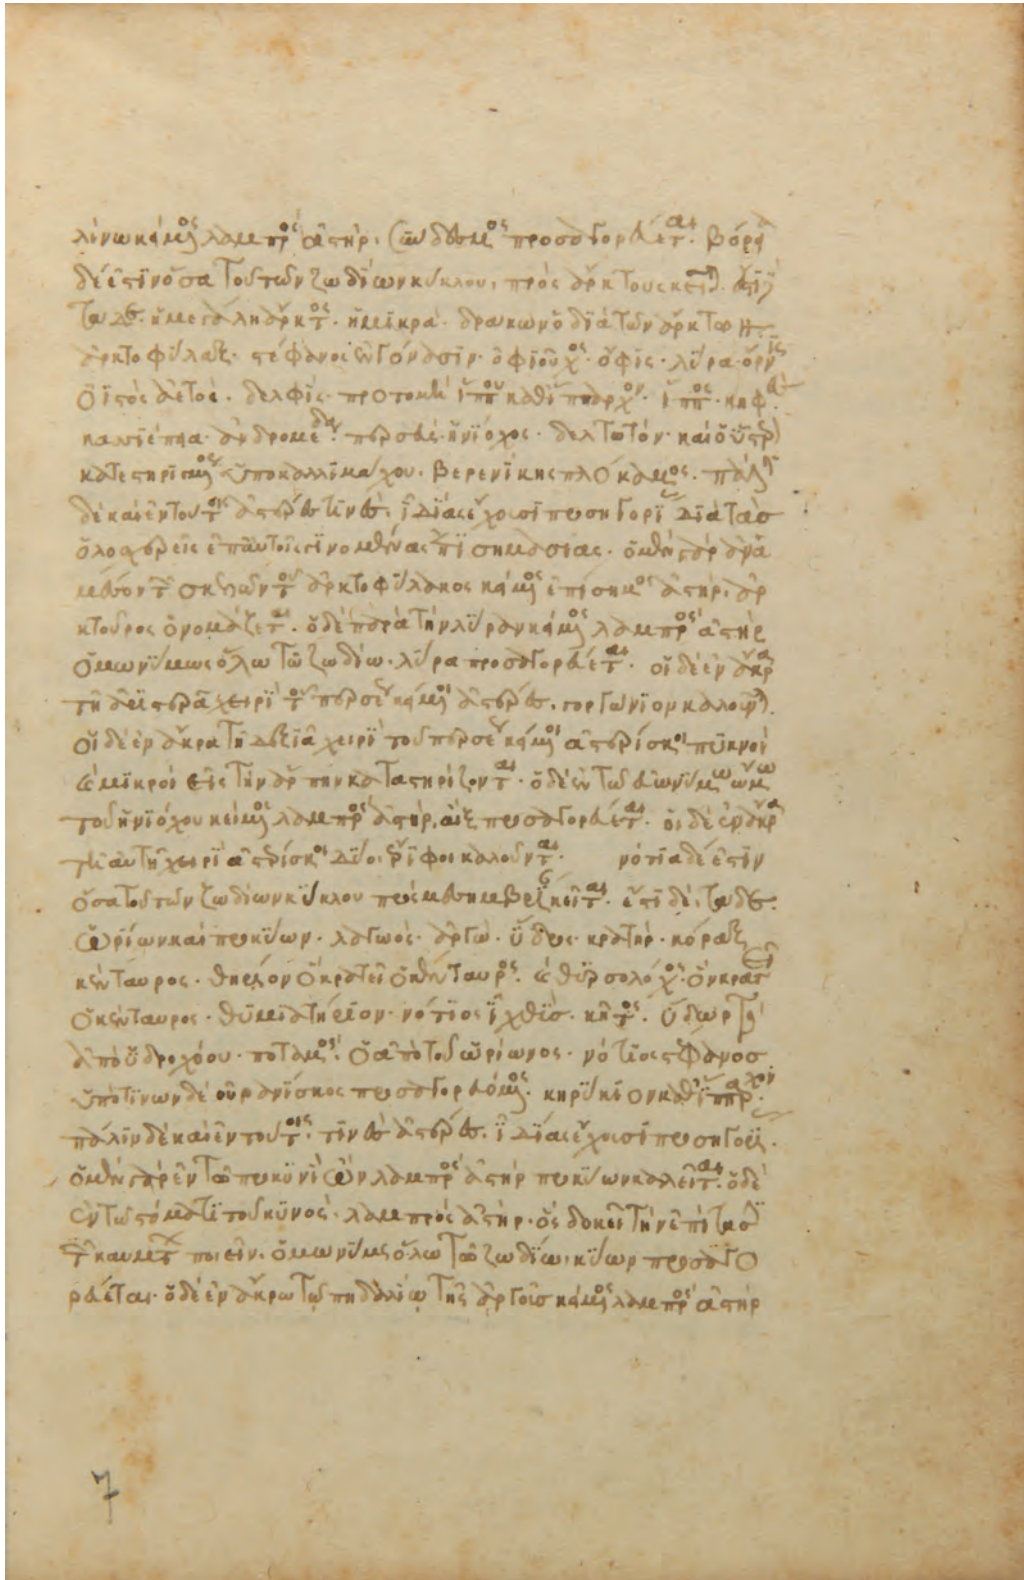 λίνω κείμενος λαμπρὸς ἀστήρ, σύνδεσμος προσαγορεύεται. βόρεια
δέ ἐστιν ὅσα τοῦ τῶν ζωδίων κύκλου, πρὸς ἄρκτους κεῖται. ἔστι δὲ
τάδε. ἡ μεγάλη ἄρκτος. ἡ μικρά. δράκων ὁ διὰ τῶν ἄρκτων.
ἀρκτοφύλαξ. στέφανος. ἐνγόνασιν. ὀφιοῦχος. ὄφις. λύρα. ὄρνις.
ὀϊστός. ἀετός. δελφίς. προτομὴ ἵππου καθ' ἵππαρχον. ἵππος. κηφεύς.
κασσιέπεια. ἀνδρομέδα. περσεύς. ἡνίοχος. δελτωτόν. καὶ ὁ ὕστερον
κατεστηρισμένος ὑπὸ καλλιμάχου. βερενίκης πλόκαμος. πάλιν
δὲ καὶ ἐν τούτοις ἀστέρες τινές, ἰδίας ἔχουσι προσηγορίας διὰ τὰς
ὁλοσχερεῖς ἐπ' αὐτοῖς γινομένας ἐπισημασίας. ὁ μὲν γὰρ ἀνὰ
μέσον τῶν σκελῶν τοῦ ἀρκτοφύλακος κείμενος ἐπίσημος ἀστήρ, ἀρ
κτοῦρος ὀνομάζεται. ὁ δὲ παρὰ τὴν λύραν κείμενος λαμπρὸς ἀστὴρ
ὁμωνύμως ὅλω τῶ ζωδίω. λύρα προσαγορεύεται. οἱ δὲ ἐν ἄκρα
τῆ ἀριστερᾶ χειρὶ τοῦ περσέως κείμενοι ἀστέρες, γοργώνιον καλοῦνται.
οἱ δὲ ἐν ἄκρα τῆ δεξιᾶ χειρὶ τοῦ περσέως κείμενοι ἀστερίσκοι πυκνοὶ
καὶ μικροὶ εἰς τὴν ἅρπην καταστηρίζονται. ὁ δὲ ἐν τῶ εὐωνύμω ὤμω
τοῦ ἡνιόχου κείμενος λαμπρὸς ἀστήρ, αἲξ προσαγορεύεται. οἱ δὲ ἐν ἄκρα
τῆ αὐτῆ χειρὶ ἀστερίσκοι δύο. ἔριφοι καλοῦνται. νότια δέ ἐστιν
ὅσα τοῦ τῶν ζωδίων κύκλου πρὸς μεσημβρίαν κεῖται. ἔστι δὲ τάδε.
ὠρίων καὶ προκύων. λαγωός. ἀργώ. ὕδρος. κρατήρ. κόραξ
κένταυρος. θηρίον ὃ κρατεῖ ὁ κένταυρος. καὶ θυρσόλογχος ὃν κρατεῖ
ὁ κένταυρος. θυμιατήριον. νότιος ἰχθύς. κῆτος. ὕδωρ τὸ
ἀπὸ ὑδροχόου. ποταμός. ὁ ἀπὸ τοῦ ὠρίωνος. νότιος στέφανος
ὑπό τινων δὲ οὐρανίσκος προσαγορευόμενος. κηρύκιον καθ' ἵππαρχον.
πάλιν δὲ καὶ ἐν τούτοις. τινὲς ἀστέρες. ἰδίας ἔχουσι προσηγορίας.
ὁ μὲν γὰρ ἐν τῶ προκυνὶ ὢν λαμπρὸς ἀστὴρ προκύων καλεῖται. ὁ δὲ
ἐν τῶ στόματι τοῦ κυνὸς. λαμπρὸς ἀστήρ. ὃς δοκεῖ τὴν ἐπίτασιν
τῶν καυμάτων ποιεῖν. ὁμωνύμως ὅλω τῶ ζωδίω. κύων προσαγο
ρεύεται. ὁ δὲ ἐν ἄκρω τῶ πηδαλίω τῆς ἀργοῦς κείμενος λαμπρὸς ἀστὴρ
7